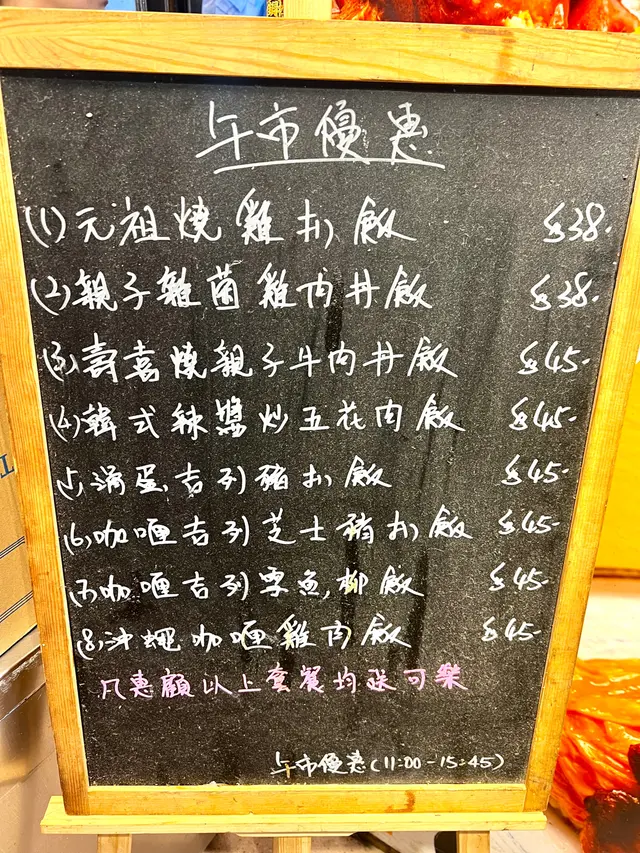 午市優惠
(1) 元祖燒雞扒飯 $38.
(2) 親子雜菌雞肉丼飯 $38.
(3) 壽喜燒親子牛肉丼飯 $45-
(4) 韓式辣醬炒五花肉飯 $45-
(5) 滑蛋吉列豬扒飯 $45-
(6) 咖喱吉列芝士豬扒飯 $45-
(7) 咖喱吉列雪魚柳飯 $45-
(8) 沖繩咖喱雞肉飯 $45-
凡惠顧以上套餐均送可樂
午市優惠 (11:00-15:45)